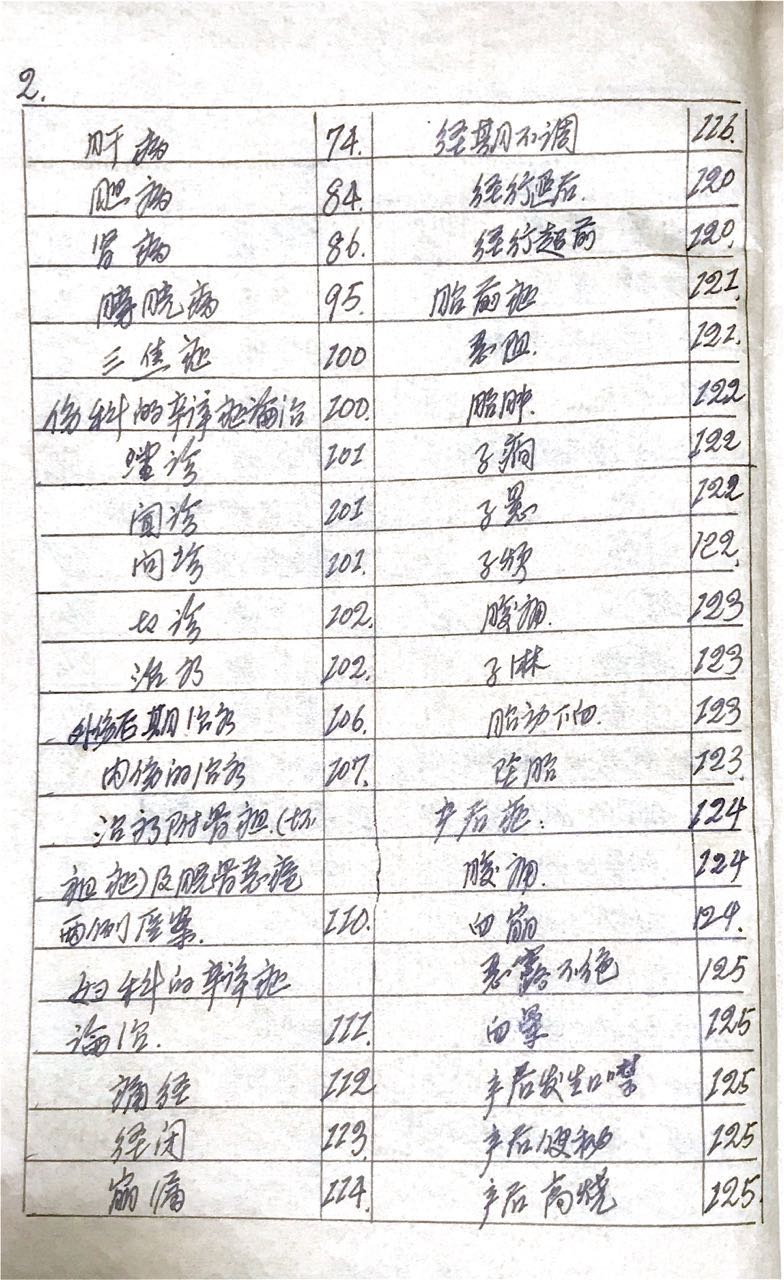 2.
肝病 74.
胆病 84.
肾病 86.
膀胱病 95.
三焦症 100
伤科的辛译症论治 100.
望诊 101
闻诊 101
问诊 101.
切诊 102.
治疗 102.
外伤后期治疗 106.
内伤的治疗 107.
治疗附骨疽.(坏
疽症)及脱骨恶疮
两例医案. 110.
妇科的辛译症
论治. 111.
痛经 112
经闭 113.
崩漏 114.
经期不调 116.
经行退后. 120
经行超前 120.
胎前症 121.
恶阻. 121.
胎肿. 122
子痫 122
子晕 122
子烦 122.
腹痛. 123
子淋 123
胎动下血. 123
坠胎 123.
产后症: 124
腹痛. 124
血崩 124.
恶露不绝 125
血晕 125
产后发生口噤 125
产后便秘 125
产后高烧 125.